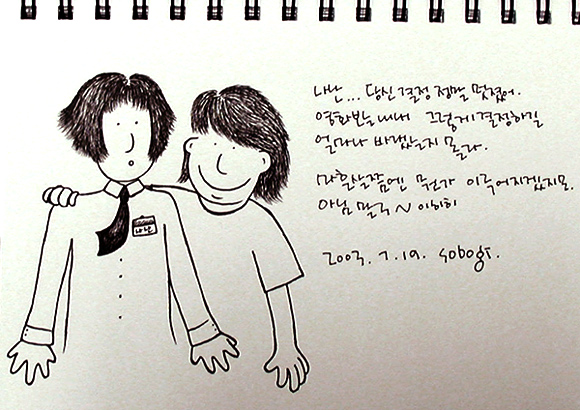 나난... 당신 결정 정말 멋졌어.
영화반을 내내 그렇게 결정하길
얼마나 바랬는지 몰라.
마흔살쯤엔 뭔가 이루어지겠지모.
아님 말구~ 이히히
2003. 7. 19. sobogi.
나난